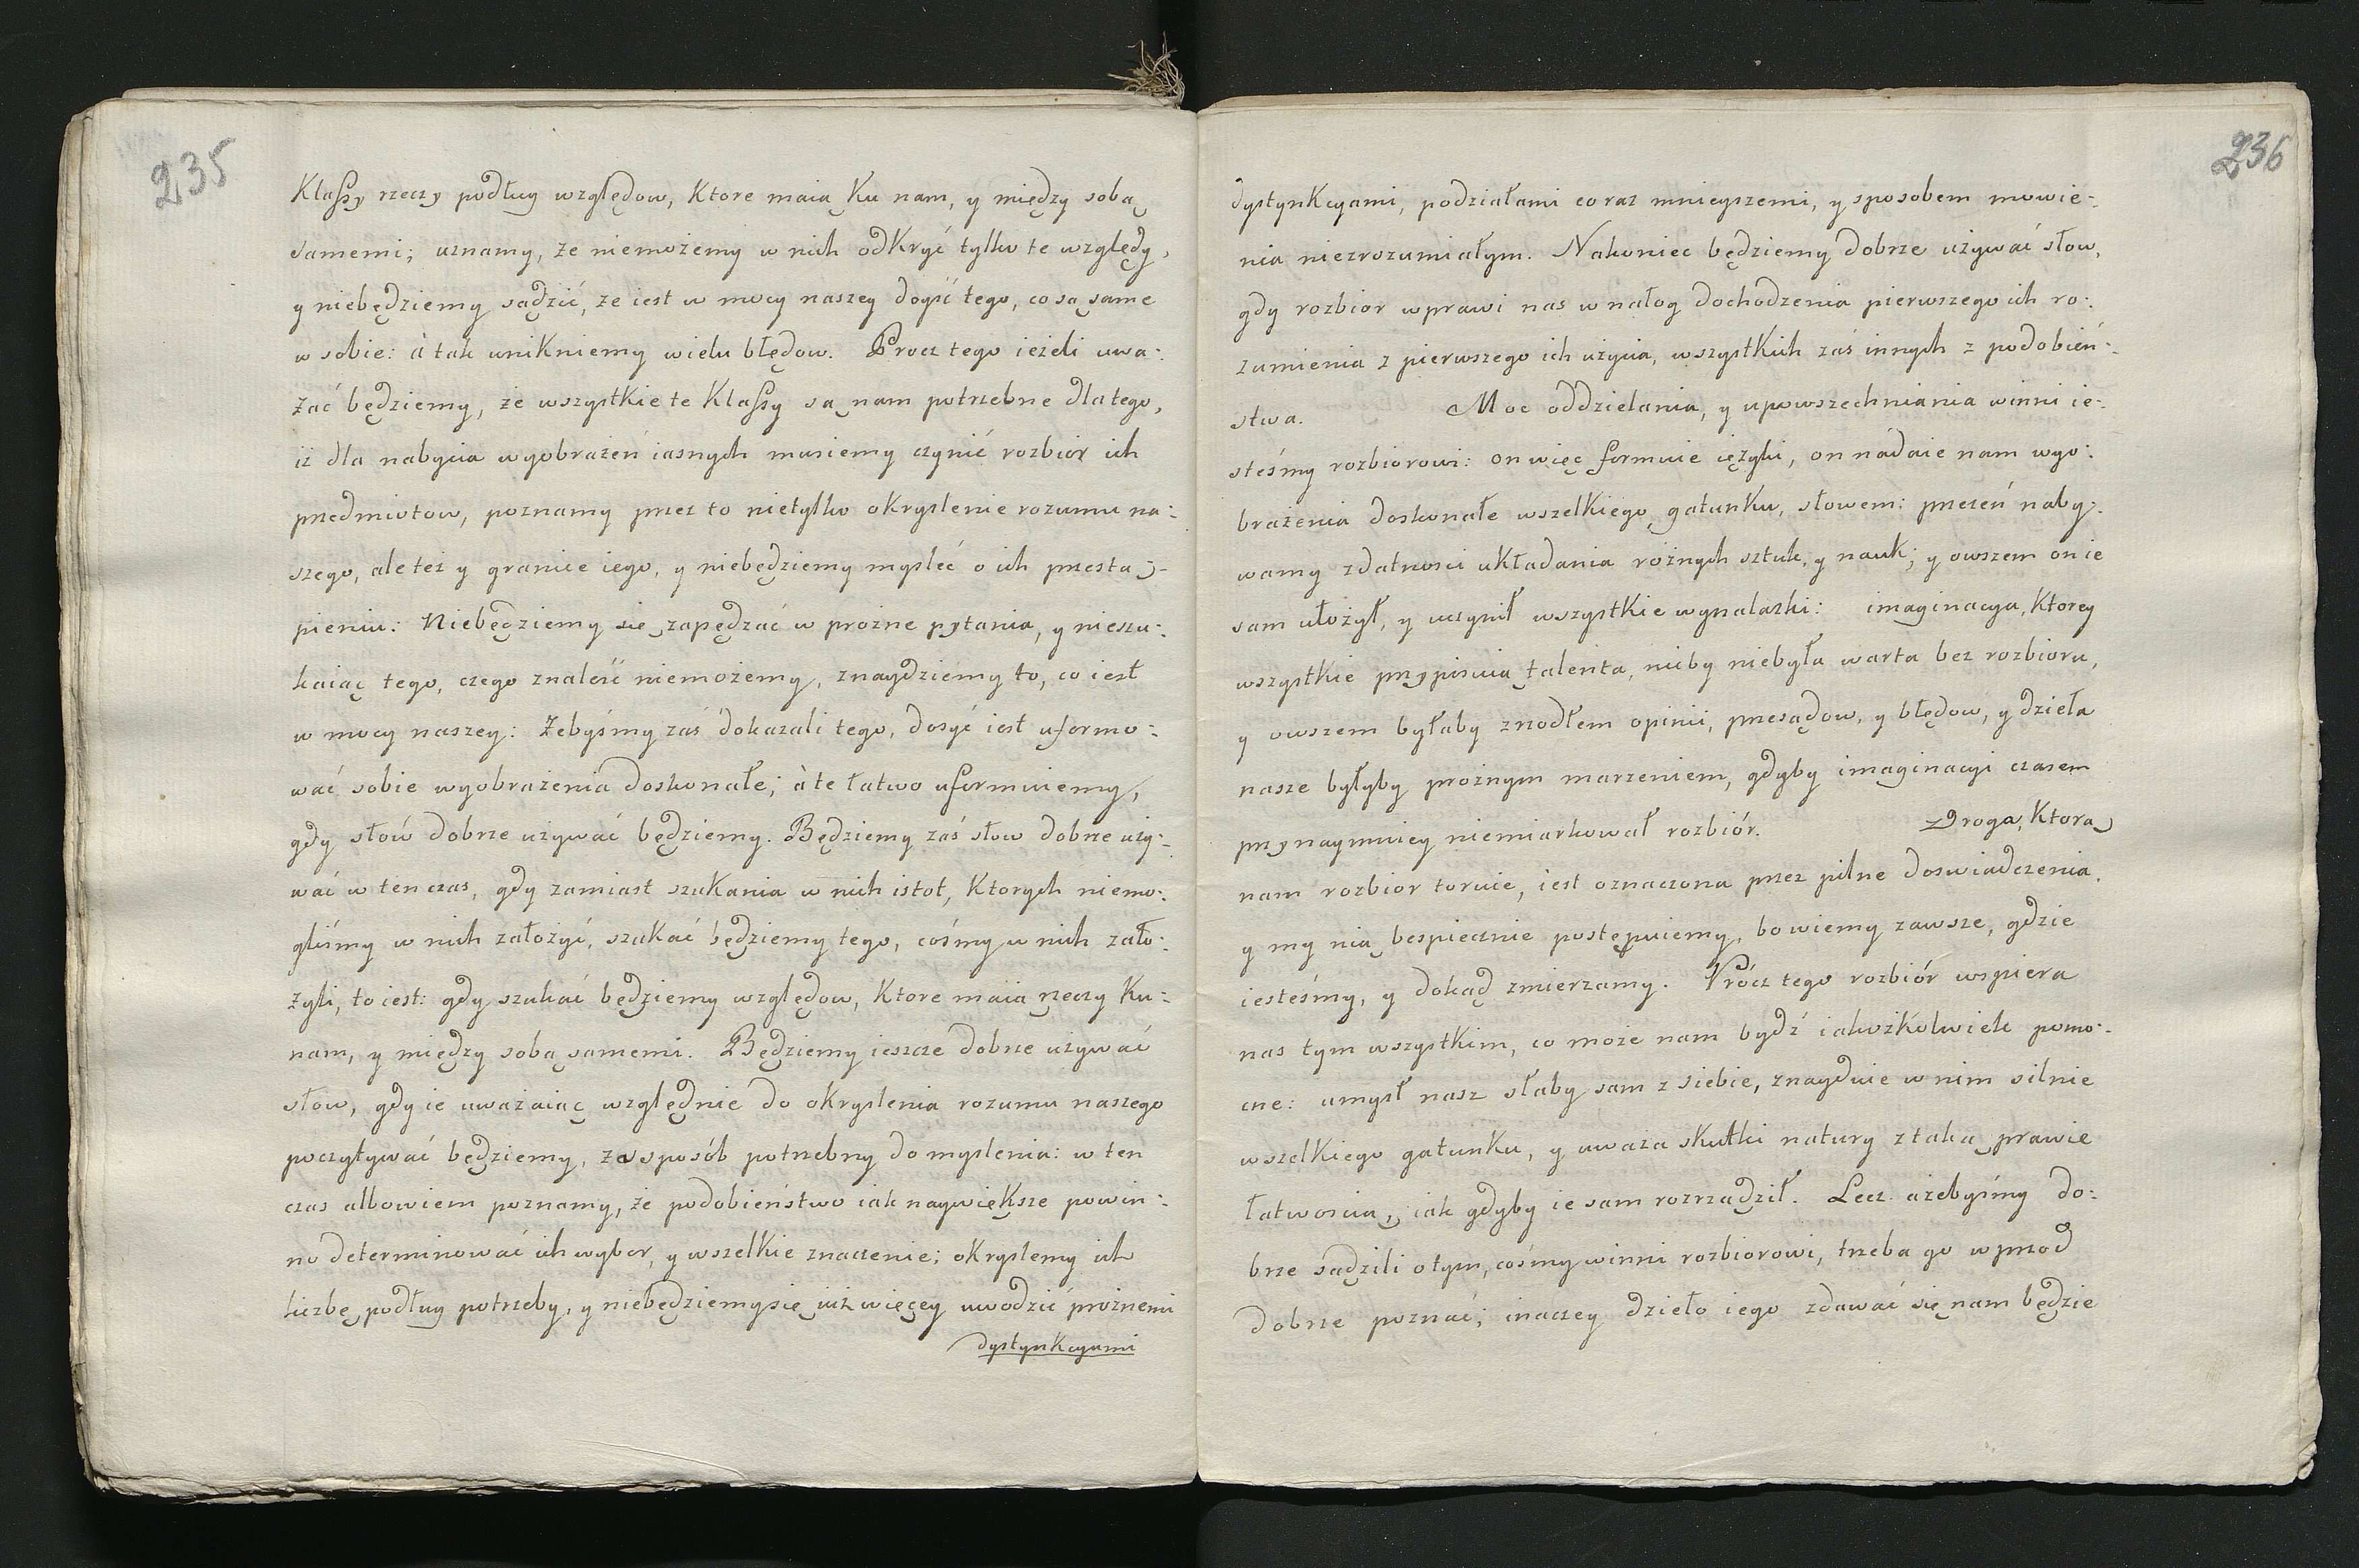 235
Klassy rzeczy podług względow, ktore maią ku nam, y między sobą
samemi; uznamy, że niemożemy w nich odkryć tylko te względy,
y niebędziemy sądzić, ze iest w mocy naszey doyść tego, co są same
w sobie: à tak unikniemy wielu błędow. Procz tego ieżeli uwa-:
żać będziemy, że wszystkie te klassy są nam potrzebne dla tego,
iż dla nabycia wyobrażeń iasnych musiemy czynić rozbior ich
przedmiotow, poznamy przez to nietylko okryslenie rozumu na-:
szego, ale też y granice iego, y niebędziemy mysleć o ich przestą-
pieniu: Niebędziemy się zapędzać w prożne pytania, y nieszu-:
kaiąc tego, czego znaleść niemożemy, znaydziemy to, co iest
w mocy naszey: Żebyśmy zaś dokazali tego, dosyć iest uformo-:
wać sobie wyobrażenia doskonałe; à te łatwo uformuiemy,
gdy słow dobrze używać będziemy. Będziemy zaś słow dobrze uży-:
wać w ten czas, gdy zamiast szukania w nich istot, ktorych niemo-:
gliśmy w nich założyć, szukać będziemy tego, cośmy w nich zało-:
żyli, to iest: gdy szukać będziemy względow, ktore maią rzeczy ku-:
nam, y między sobą samemi. Będziemy ieszcze dobrze używać
słow, gdy ie uważaiąc względnie do okryslenia rozumu naszego
poczytywać będziemy, za sposób potrzebny do myslenia: w ten
czas albowiem poznamy, że podobieństwo iak naywiększe powin-:
no determinować ich wybor, y wszelkie znaczenie; okryslemy ich
liczbę podług potrzeby, y niebędziemy się iuż więcey uwodzić prożnemi
dystynkcyami
236
dystynkcyami, podziałami co raz mnieyszemi, y sposobem mowie-:
nia niezrozumiałym. Nakoniec będziemy dobrze używać słow,
gdy rozbior wprawi nas w nałog dochodzenia pierwszego ich ro-:
zumienia z pierwszego ich użycia, wszystkich zaś innych z podobień-:
stwa. Moc oddzielania, y upowszechniania winni ie-:
steśmy rozbiorowi: on więc formuie ięzyki, on nádaie nam wyo-:
brażenia doskonałe wszelkiego gatunku, słowem: przezeń naby-:
wamy zdatności układania rożnych sztuk, y nauk; y owszem on ie
sam ułożył, y uczynił wszystkie wynalazki: imaginacya, ktorey
wszystkie przypisuią talenta, nicby niebyła warta bez rozbioru,
y owszem byłaby zrodłem opinii, przesądow, y błędow, y dzieła
nasze byłyby prożnym marzeniem, gdyby imaginacyi czasem
przynaymniey niemiarkował rozbiór. Droga, ktorą
nam rozbior toruie, iest oznaczona przez pilne doswiadczenia,
y my nią bespiecznie postępuiemy, bo wiemy zawsze, gdzie
iesteśmy, y dokąd zmierzamy. Prócz tego rozbiór wspiera
nas tym wszystkim, co może nam bydź iakożkolwiek pomo-:
cne: umysł nasz słaby sam z siebie, znayduie w nim silnie
wszelkiego gatunku, y uważa skutki natury z taką prawie
łatwoscią, iak gdyby ie sam rozrządził. Lecz ażebyśmy do-:
brze sądzili o tym, cośmy winni rozbiorowi, trzeba go wprzod
dobrze poznać; inaczey dzieło iego zdawać się nam będzie